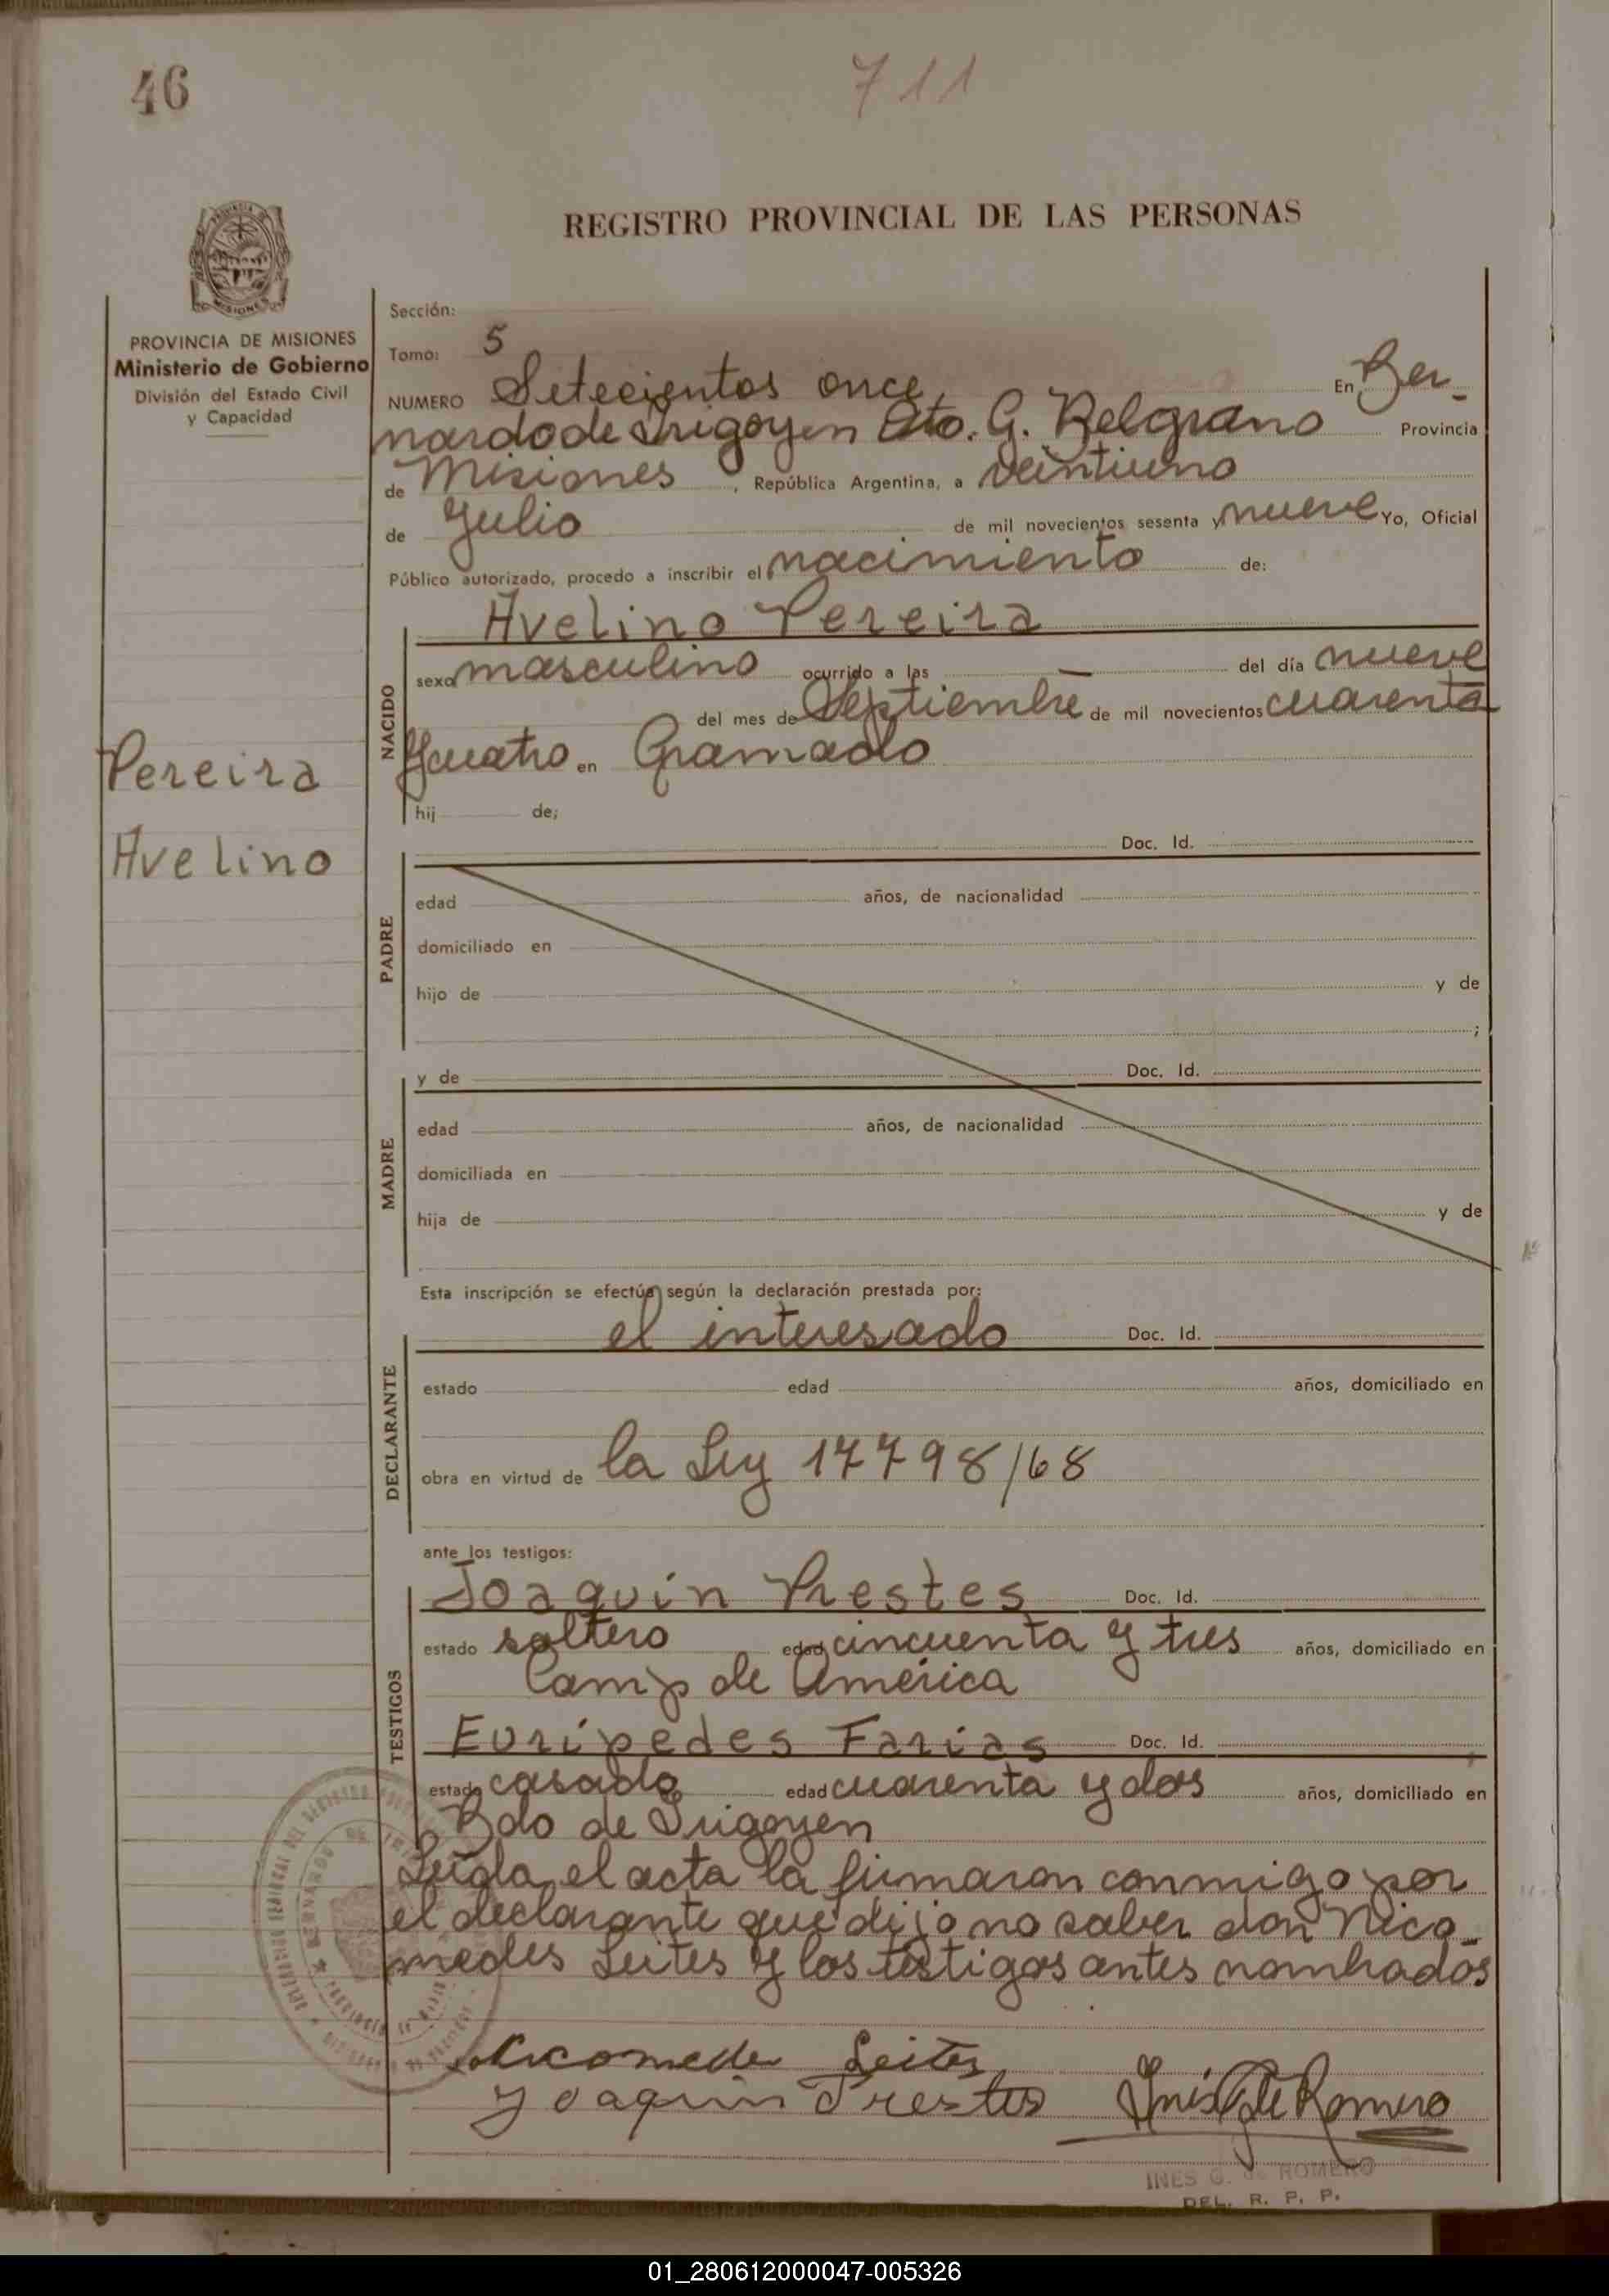 46
711
REGISTRO PROVINCIAL DE LAS PERSONAS
PROVINCIA DE MISIONES
Ministerio de Gobierno
División del Estado Civil
y Capacidad
Pereira
Avelino
Sección:
Tomo: 5
NUMERO Setecientos once En Ber-
nardo de Irigoyen Dto. G. Belgrano Provincia
de Misiones, República Argentina, a veintiuno
de Julio de mil novecientos sesenta y nueve Yo, Oficial
Público autorizado, procedo a inscribir el nacimiento de:
NACIDO
Avelino Pereira
sexo masculino ocurrido a las — del día nueve
del mes de Septiembre de mil novecientos cuarenta
y cuatro en Gramado
hij de;
PADRE
Doc. Id.
edad años, de nacionalidad
domiciliado en
hijo de y de
;
MADRE
y de Doc. Id.
edad años, de nacionalidad
domiciliada en
hija de y de
Esta inscripción se efectúa según la declaración prestada por:
DECLARANTE
el interesado Doc. Id.
estado edad años, domiciliado en
obra en virtud de la Ley 17798/68
ante los testigos:
TESTIGOS
Joaquin Prestes Doc. Id.
estado soltero edad cincuenta y tres años, domiciliado en
Camp de América
Eurípedes Farias Doc. Id.
estado casado edad cuarenta y dos años, domiciliado en
Bdo de Irigoyen
Leída el acta la firmaron conmigo por
el declarante que dijo no saber don Nico-
medes Leites y los testigos antes nombrados
Nicomede Leites
Joaquin Prestes Inés G de Romero
INES G. de ROMERO
DEL. R. P. P.
01_280612000047-005326